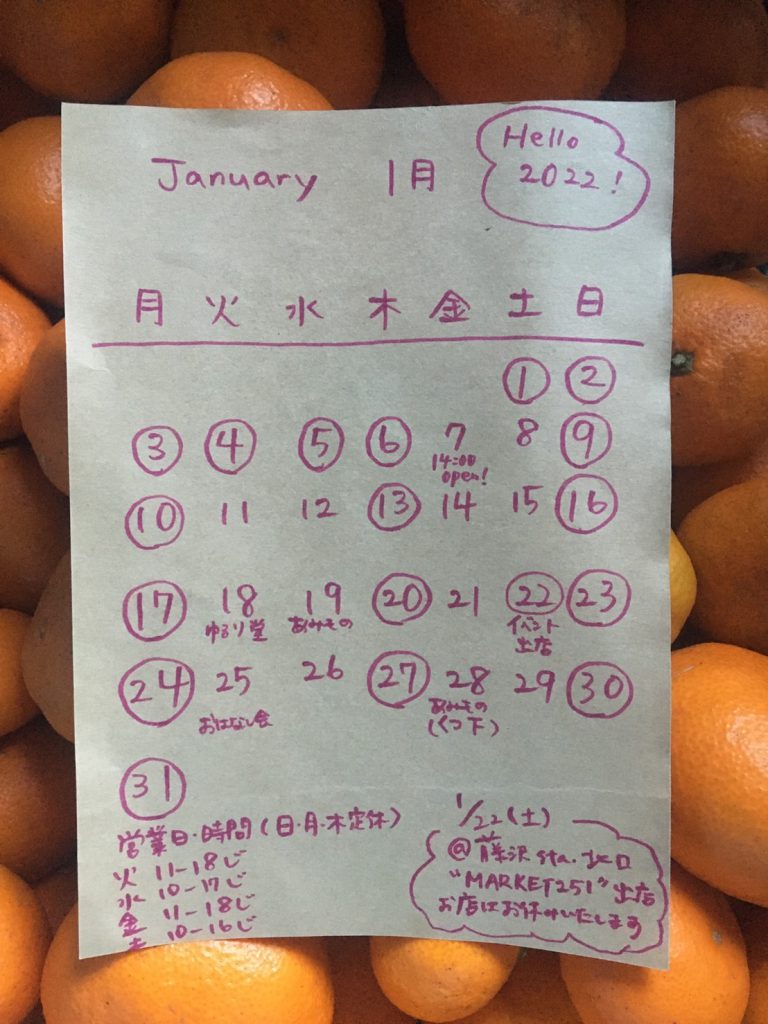 January 1月
Hello
2022!
月 火 水 木 金 土 日
1 2
3 4 5 6 7 8 9
14:00
open!
10 11 12 13 14 15 16
17 18 19 20 21 22 23
ゆるり堂 あみもの イベント
出店
24 25 26 27 28 29 30
おはなし会 あみもの
(くつ下)
31
営業日・時間(日・月・木定休)
火 11-18じ
水 10-17じ
金 11-18じ
土 10-16じ
1/22(土)
@藤沢sta.北口
"MARKET251"出店
お店はお休みいたします